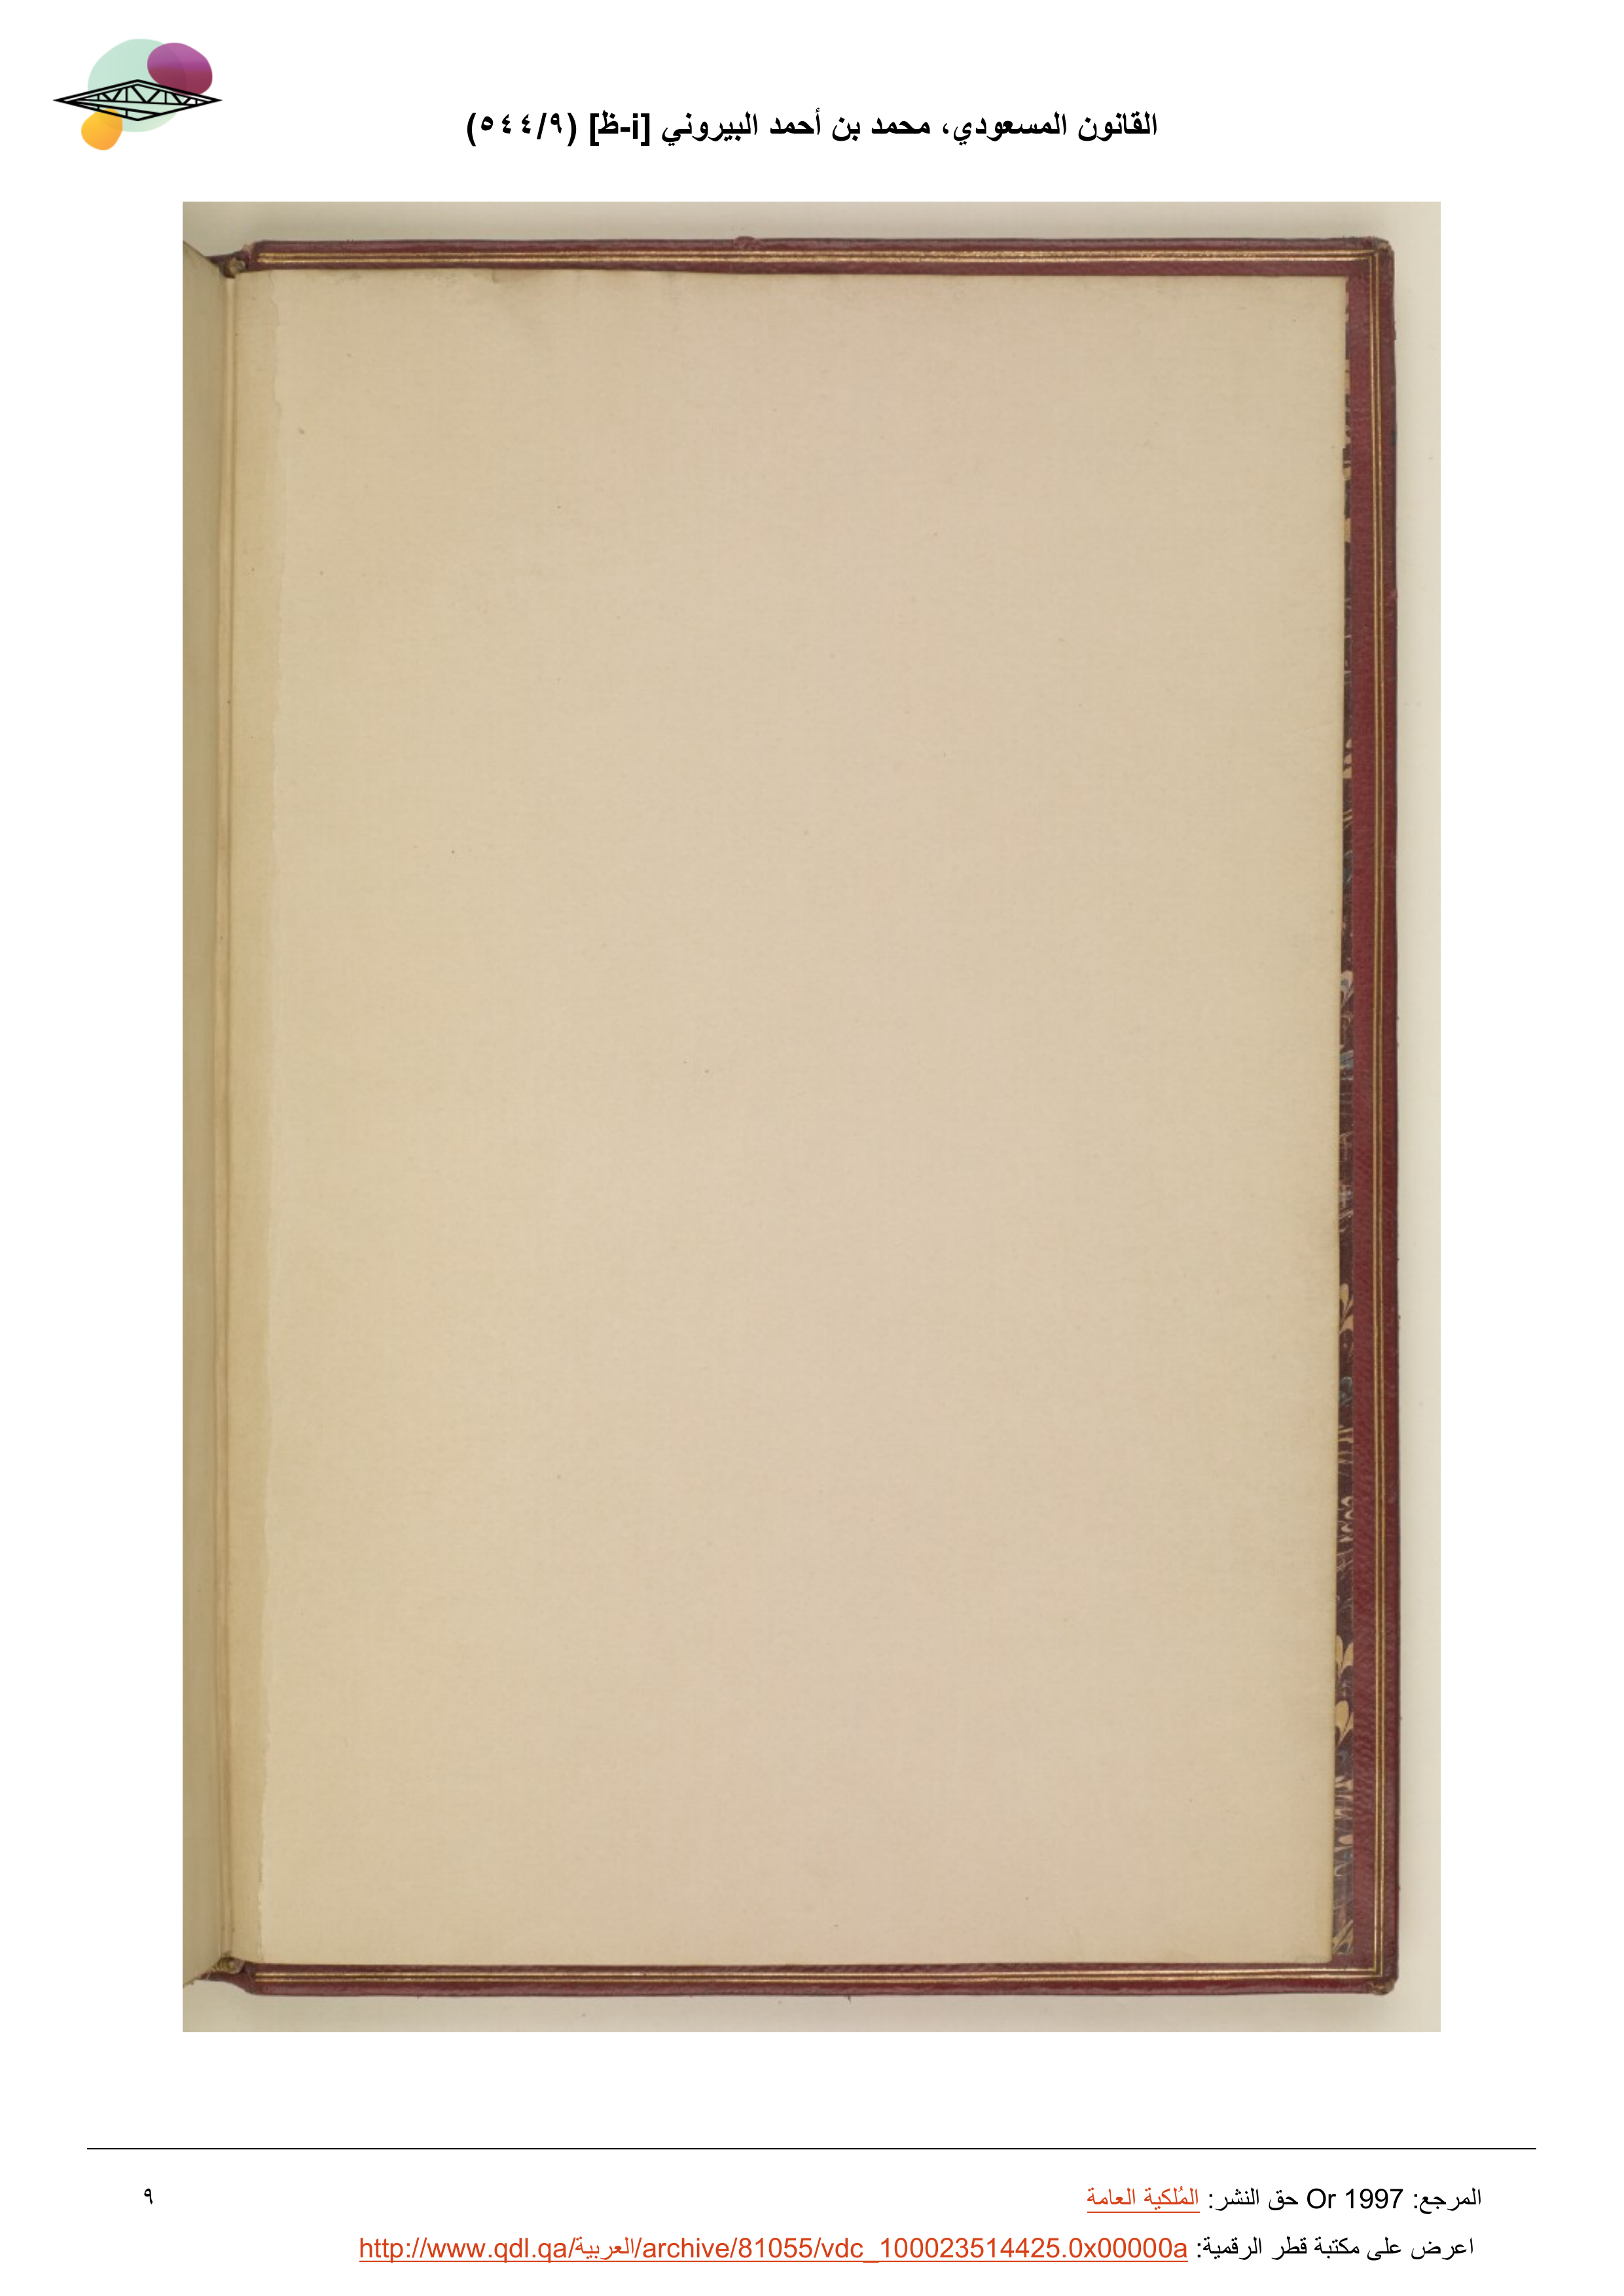 القانون المسعودي، محمد بن أحمد البيروني [i-ظ] (٥٤٤/٩)
المرجع: Or 1997 حق النشر: المُلكية العامة
٩
اعرض على مكتبة قطر الرقمية: http://www.qdl.qa/العربية/archive/81055/vdc_100023514425.0x00000a